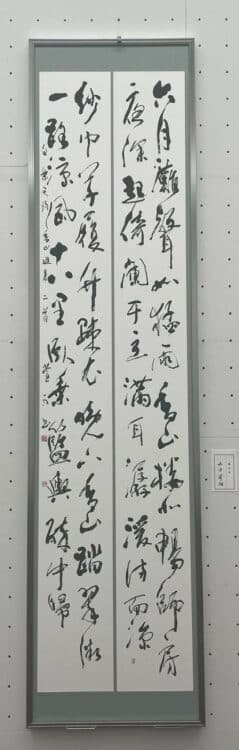 六月灘聲如猛雨香山樓北暢師房
夜深起倚闌干立滿耳潺湲滿面涼
紗巾草履竹疎衣晚下香山踏翠微
一路涼風十八里臥乘籃輿睡中歸
白樂天詩香山避暑二首